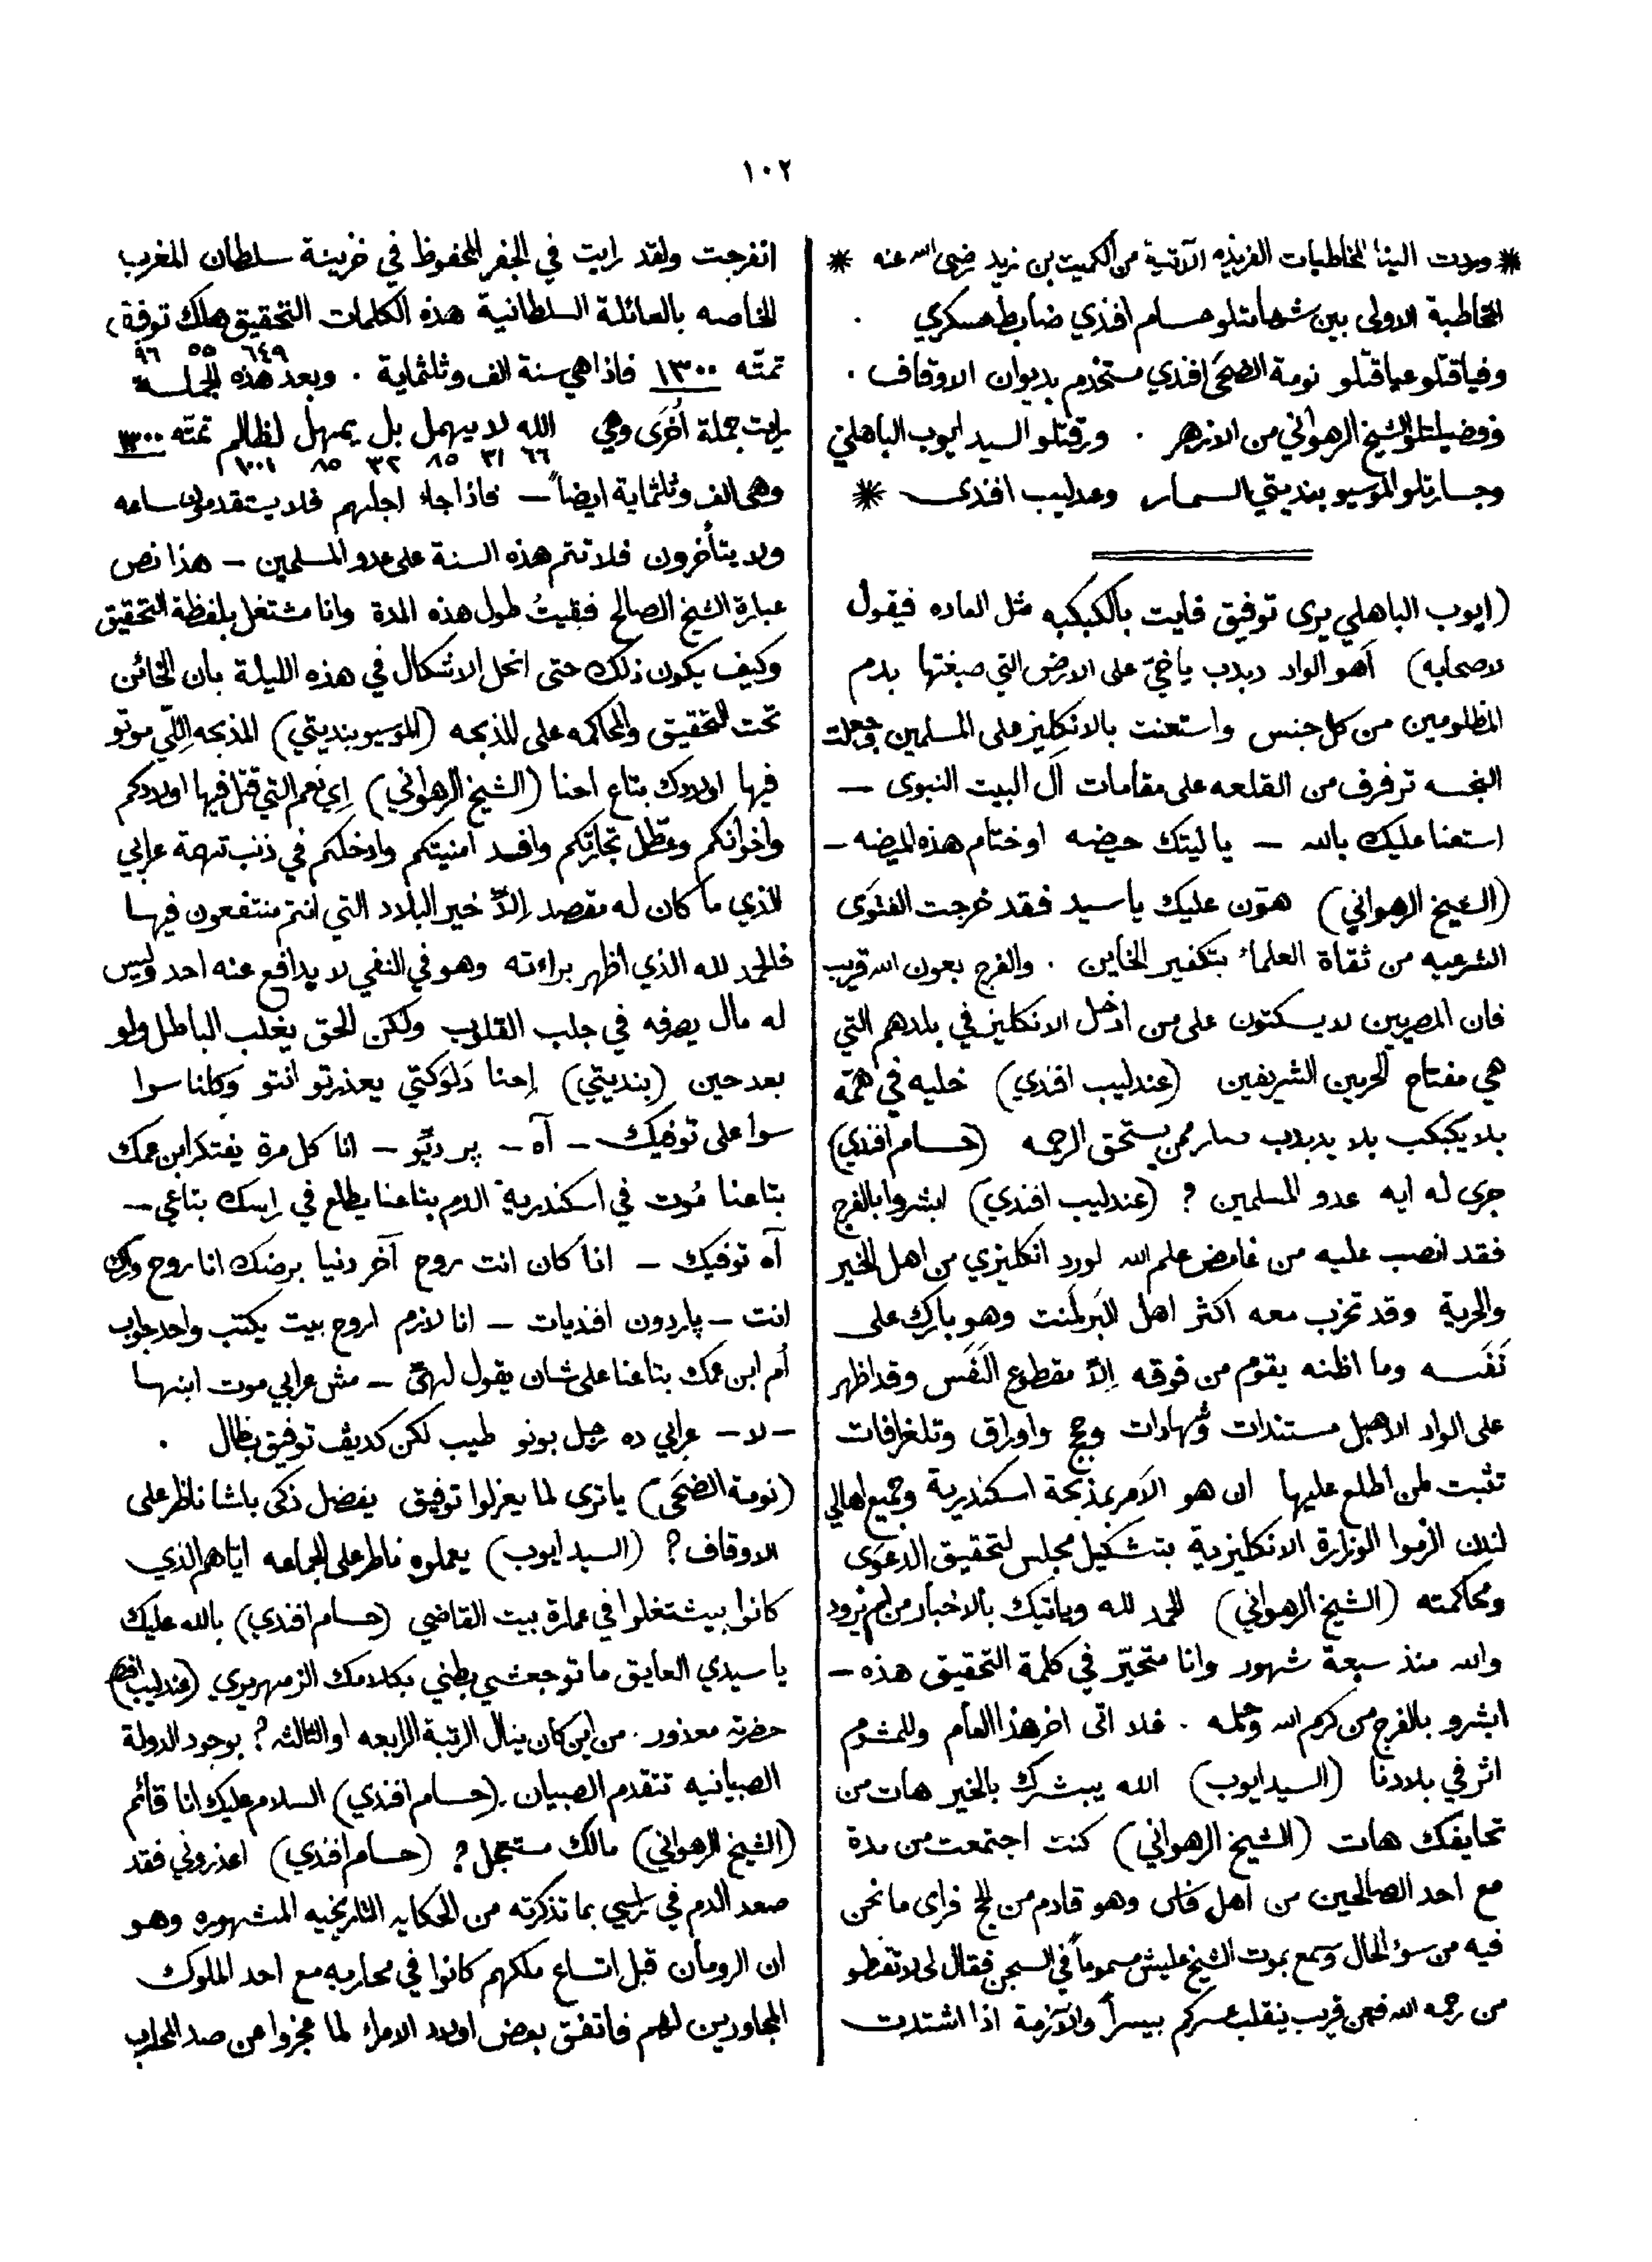 ١٠٢
* وردت الينا المخاطبات الفريزيه الآتية من الكميت بن زيد رضى الله عنه *
المخاطبة الاولى بين شهامتلو حسام افندي ضابط عسكري .
وفياقتلو عياقتلو نومة الضحَى افندي مستخدم بديوان الاوقاف .
وفضيلتلو الشيخ الرهواني من الازهر . ورقتلو السيد ايوب الباهلي
وجسارتلو الموسيو بنديتي السمسار وعندليب افندى *
(ايوب الباهلي يرى توفيق فايت بالكبكبه مثل العاده فيقول
لاصحابه) اَهو الواد دبدب ياخيّ على الارض التي صبغتها بدم
المظلومين من كل جنس واستعنت بالانكليز على المسلمين وجعلت
النجسه ترفرف من القلعه على مقامات آل البيت النبوى —
استعنا عليك بالله — ياليتك حيضه او ختام هذه الحيضه —
(الشيخ الرهواني) هوّن عليك ياسيد فقد خرجت الفتوَى
الشرعيه من ثقاة العلماء بتكفير الخاين . والفرج بعون الله قريب
فان المصريين لا يسكتون على من ادخل الانكليز في بلادهم التي
هي مفتاح الحرمين الشريفين (عندليب افندي) خليه في همّه
بلا يكبكب بلا يدبدب صار ممن يستحق الرحمه (حسام افندي)
جرى له ايه عدو المسلمين ؟ (عندليب افندي) ابشروا بالفرج
فقد انصب عليه من غامض علم الله لورد انكليزي من اهل الخير
والحرية وقد تحزب معه اكثر اهل البَرلمنت وهو بارك على
نَفَسه وما اظنه يقوم من فوقه اِلاّ مقطوع النَفَس وقد اظهر
على الواد الاهبل مستندات وشهادات وحجج واوراق وتلغرافات
تثبت لمن اطلع عليها ان هو الآمر بمذبحة اسكندرية وجميع اهالي
لندن الزموا الوزارة الانكليزية بتشكيل مجلس لتحقيق الدعوَى
ومحاكمته (الشيخ الرهواني) الحمد لله وياتيك بالاخبار من لم تزود
والله منذ سبعة شهور وانا متحيّر في كلمة التحقيق هذه —
ابشرو بالفرج من كرم الله وحمله . فلا اتى اخر هذا العام وللمشوم
اثر في بلادنا (السيد ايوب) الله يبشرك بالخير هات من
تحايفك هات (الشيخ الرهواني) كنت اجتمعت من مدة
مع احد الصالحين من اهل فاس وهو قادم من الحج فراى ما نحن
فيه من سؤ الحال وسمع بموت الشيخ عليش مسموماً في السجن فقال لى لا تقنطو
من رحمة الله فعن قريب ينقلب عسركم بيسراً والآزمة اذا اشتدت
انفرجت ولقد رايت في الجفر المحفوظ في خزينة سلطان المغرب
الخاصه بالعائلة السلطانية هذه الكلمات التحقيق هلك توفيق
٦٤٩ ٥٥ ٩٦
تمتّه ١٣٠٠ فاذا هي سنة الف وثلثماية . وبعد هذه الجملة
رايت جملة اُخرَى وهي الله لا يهمل بل يمهل لظالم تمتّه ١٣٠٠
٦٦ ٣١ ٨٥ ٣٢ ٨٥ ١٠٠١
وهى الف وثلثماية ايضاً — فاذا جاء اجلهم فلا يستقدمون ساعه
ولا يتأخرون فلا تتم هذه السنة على عدو المسلمين — هذا نص
عبارة الشيخ الصالح فبقيتُ طول هذه المدة وانا مشتغل بلفظة التحقيق
وكيف يكون ذلك حتى انحل الاشكال في هذه الليلة بان الخائن
تحت التحقيق والمحاكمه على المذبحه (الموسيو بنديتي) المذبحه اِللّي موتو
فيها اولادك بتاع احنا (الشيخ الرهواني) اِي نعم التي قتل فيها اولادكم
واخوانكم وعطّل تجارتكم وافسد امنيتكم وادخلكم في ذنب تهمة عرابي
الذي ما كان له مقصد اِلاّ خير البلاد التي انتم منتفعون فيها
فالحمد لله الذي اظهر براءته وهو في النفي لا يدافع عنه احد وليس
له مال يصرفه في جلب القلوب ولكن الحق يغلب الباطل ولو
بعد حين (بنديتي) اِحنا دَلوَكتي يعذرتو انتو وكلنا سوا
سوا على توفيك — آه — پر ديّو — انا كل مرة يفتكر ابن عمك
بتاعنا مُوت في اسكندرية الدم بتاعنا يطلع في راسك بتاعي —
آه توفيك — انا كان انت روح آخر دنيا برضك انا روح وراك
انت — پاردون افنديات — انا لازم اروح بيت يكتب واحد جواب
اُم ابن عمك بتاعنا على شان يقول لهيّ — مش عرابي موت ابنها
— لا — عرابي ده رجل بونو طيب لكن كديڤ توفيق بطال .
(نومة الضحَى) ياترى لما يعزلوا توفيق يفضل ذكى باشا ناظر على
الاوقاف ؟ (السيد ايوب) يعملوه ناطر على الجماعه اياهم الذي
كانوا بيشتغلوا في عمارة بيت القاضي (حسام افندي) بالله عليك
يا سيدي العايق ما توجعشي بطني بكلامك الزمهريري (عندليب افندي)
حضرته معذور . من اين كان ينال الرتبة الرابعه او الثالثه ؟ بوجود الدولة
الصبيانيه تتقدم الصبيان . (حسام افندي) السلام عليك انا قائم
(الشيخ الرهواني) مالك مستعجل ؟ (حسام افندي) اعذروني فقد
صعد الدم في راسي بما تذكرته من الحكايه التاريخيه المشهوره وهو
ان الرومان قبل اتساع ملكهم كانوا في محاربه مع احد الملوك
المجاورين لهم فاتفق بعض اولاد الامراء لما عجزوا عن صد المحارب